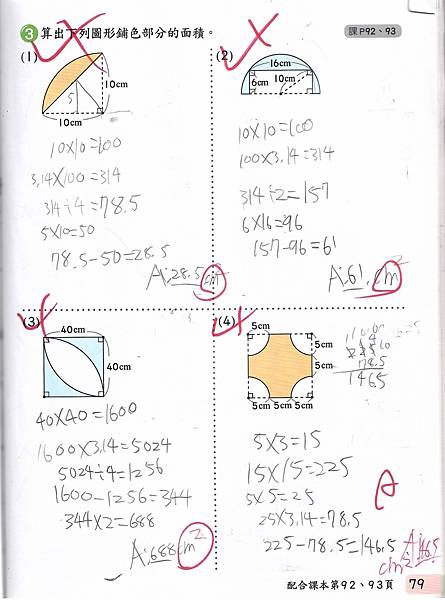 3 算出下列圖形鋪色部分的面積。
課P92、93
(1)
10cm
5
10cm
10X10=100
3.14X100=314
314÷4=78.5
5X10=50
78.5-50=28.5
A:28.5cm²
(2)
16cm
6cm 10cm
10X10=100
100X3.14=314
314÷2=157
6X16=96
157-96=61
A:61.cm²
(3)
40cm
40cm
40X40=1600
1600X3.14=5024
5024÷4=1256
1600-1256=344
344X2=688
A:688cm²
(4)
5cm
5cm
5cm
5cm
5cm 5cm 5cm
78.5
1465
5X3=15
15X15=225
5X5=25
25X3.14=78.5
225-78.5=146.5
A:146.5
cm²
配合課本第92、93頁 79